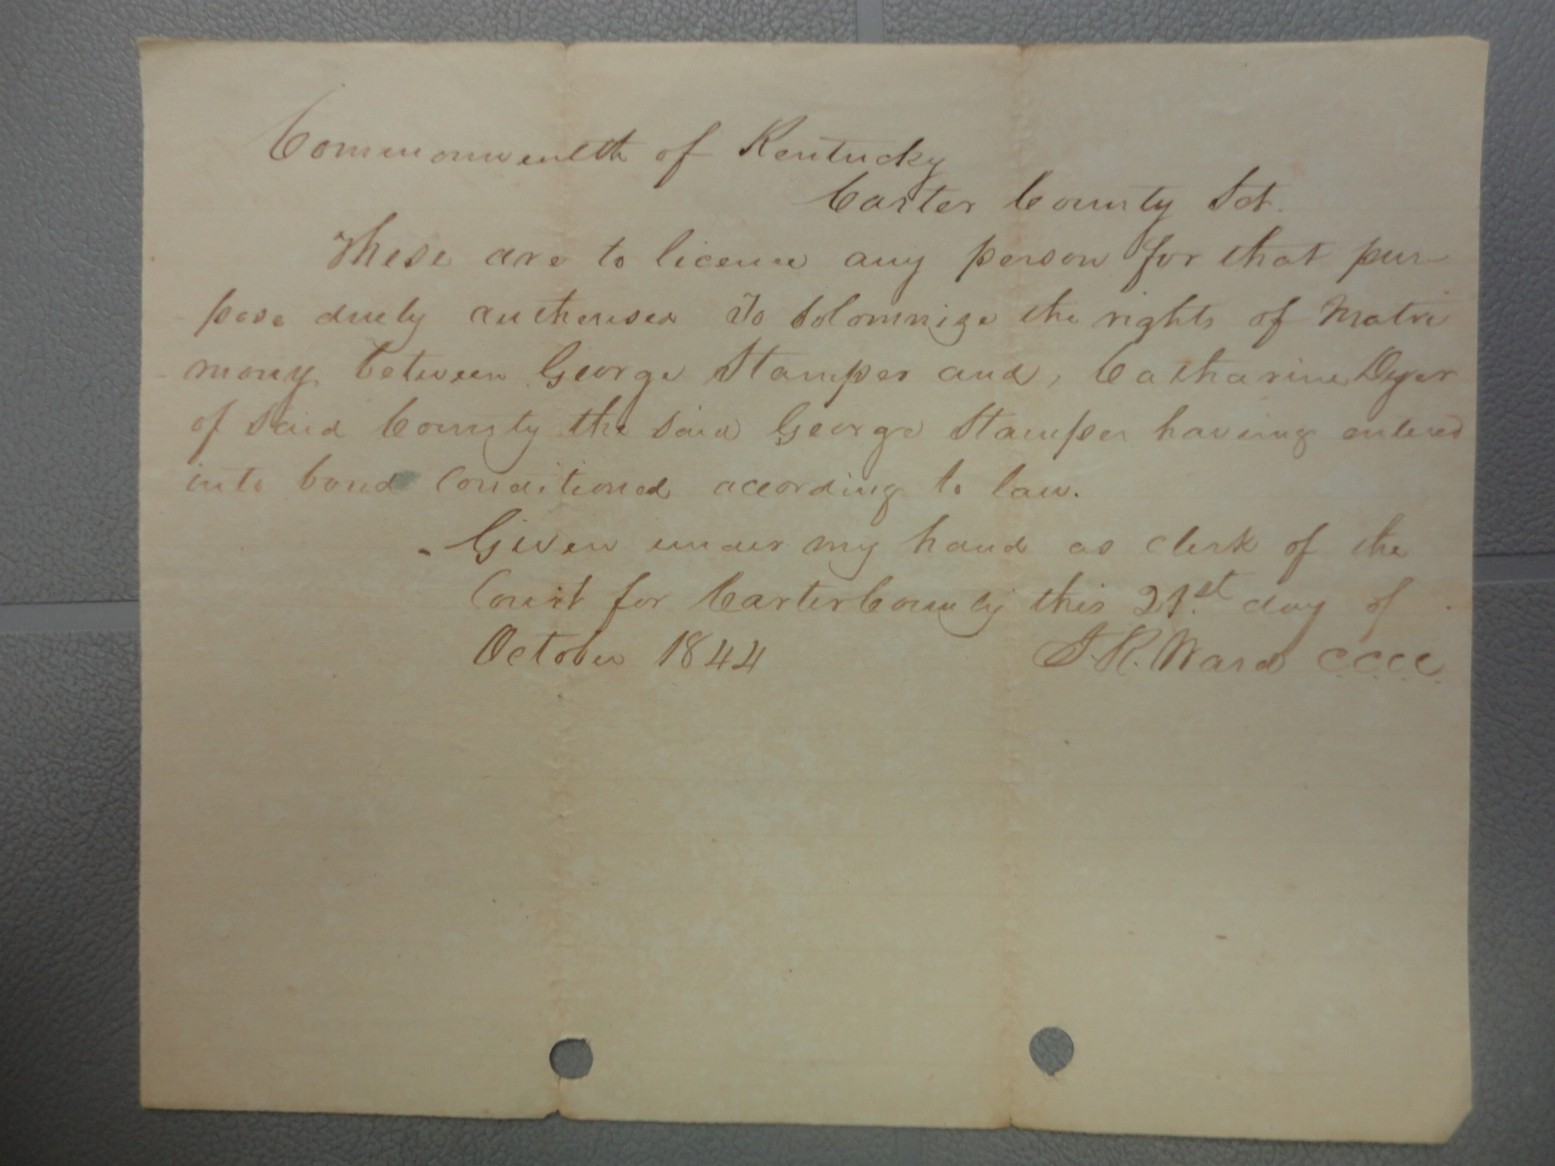 Commonwealth of Kentucky
Carter County Sct.
These are to licence any person for that pur-
pose duely autherised To Solomnize the rights of Matri
mony between George Stamper and, Catharine Dyer
of said County the said George Stamper having entered
into bond Conditioned according to law.
Given under my hand as clerk of the
Court for Carter County this 21st day of
October 1844 R. Ward C.C.C.C.